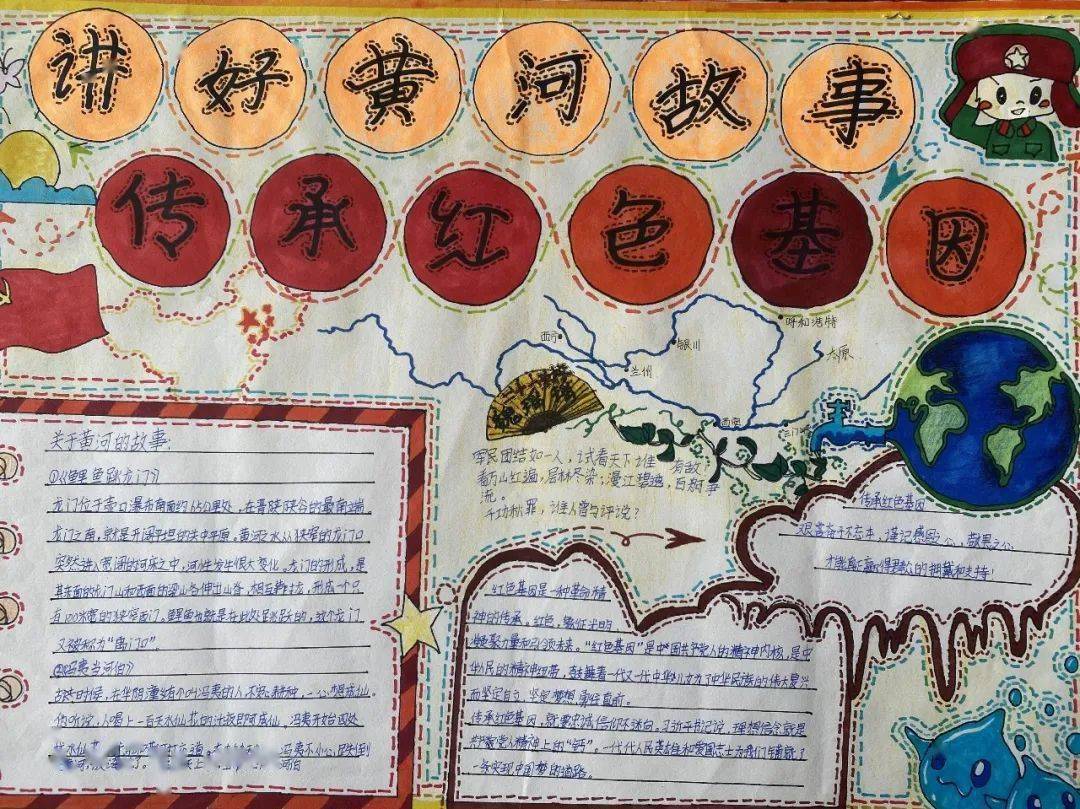 讲好黄河故事
传承红色基因
呼和浩特
西宁
银川
太原
兰州
西安
三门
关于黄河的故事:
①《鲤鱼跃龙门》
龙门位于壶口瀑布南面约65公里处,在晋陕峡谷的最南端
龙门之南,就是开阔平坦的关中平原,黄河之水从狭窄的龙门口
突然进入宽阔的河床之中,河性发生很大变化。龙门的形成,是
其东面的龙门山和西面的梁山各伸出山脊,相互靠拢,形成一个只
有100米宽的狭窄西门,鲤鱼也就是在此处鱼跃的,这个龙门
又被称为“禹门口”。
②《冯夷当河伯》
古时候,在华阴潼关有个叫冯夷的人不安耕种,一心想成仙
他听说,人喝上一百天水仙花的汁液即可成仙,冯夷开始四处
冯夷不小心跌到
军民团结如一人,试看天下谁 为敌?
看万山红遍,层林尽染;漫江碧透,百舸争
流。
千功秋罪,谁人曾与评说?
传承红色基因
艰苦奋斗不忘本,谨记感恩之心,敬畏之心,
才能真正赢得民众的拥戴和支持!
红色基因是一种革命精
神的传承,红色,象征光明
凝聚力量和引领未来。“红色基因”是中国共产党人的精神内核,是中
华人民的精神纽带,鼓舞着一代又一代中华儿女为了中华民族的伟大复兴
而坚定自立,坚定梦想,勇往直前。
传承红色基因,就要忠诚信仰不迷向,习近平书记说,理想信念就是
共产党人精神上的“钙”。一代代人民英雄和爱国志士为我们铺就了
一条实现中国梦的道路。